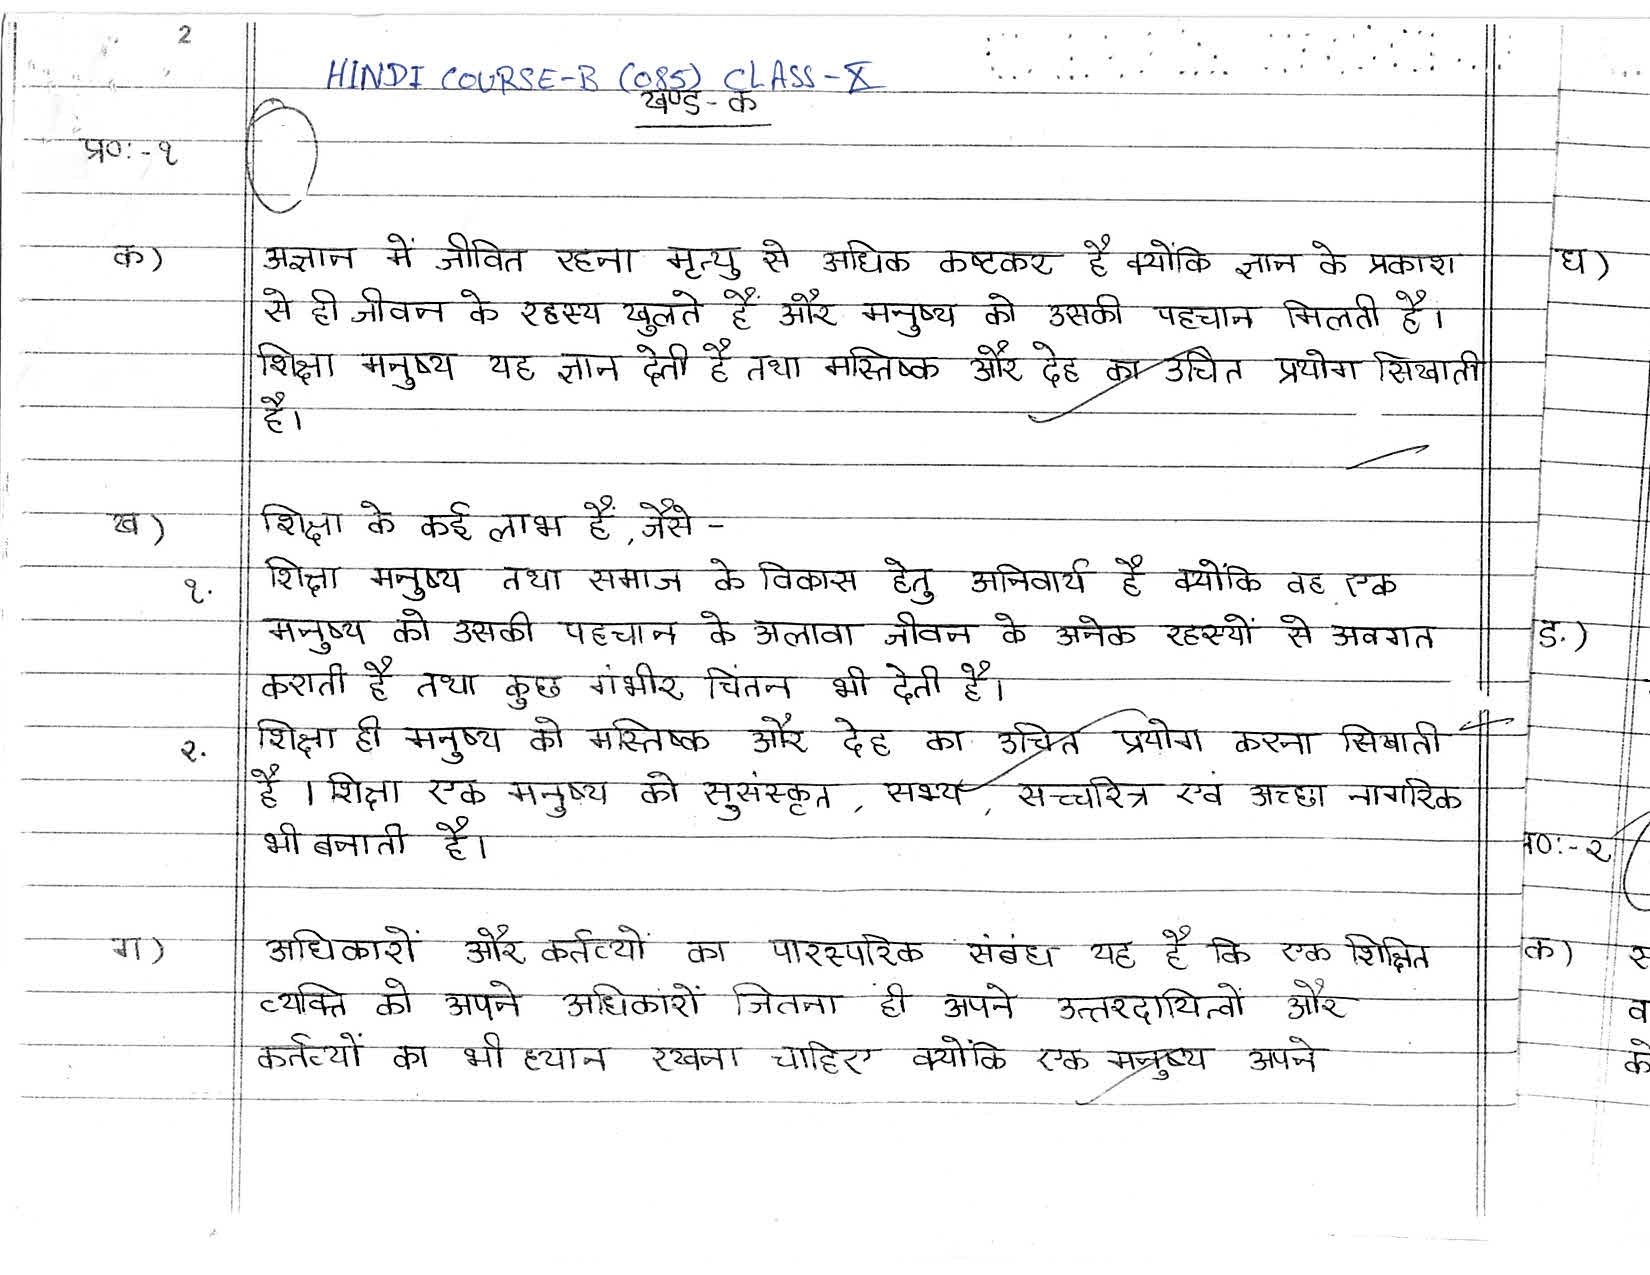 2
HINDI COURSE-B (085) CLASS-X
खण्ड - क
प्र०:- १
क) अज्ञान में जीवित रहना मृत्यु से अधिक कष्टकर है क्योंकि ज्ञान के प्रकाश
से ही जीवन के रहस्य खुलते हैं और मनुष्य को उसकी पहचान मिलती है।
शिक्षा मनुष्य यह ज्ञान देती है तथा मस्तिष्क और देह का उचित प्रयोग सिखाती
है।
ख) शिक्षा के कई लाभ हैं, जैसे -
१. शिक्षा मनुष्य तथा समाज के विकास हेतु अनिवार्य है क्योंकि वह एक
मनुष्य को उसकी पहचान के अलावा जीवन के अनेक रहस्यों से अवगत
कराती है तथा कुछ गंभीर चिंतन भी देती है।
२. शिक्षा ही मनुष्य को मस्तिष्क और देह का उचित प्रयोग करना सिखाती
है। शिक्षा एक मनुष्य को सुसंस्कृत, सभ्य, सच्चरित्र एवं अच्छा नागरिक
भी बनाती है।
ग) अधिकारों और कर्तव्यों का पारस्परिक संबंध यह है कि एक शिक्षित
व्यक्ति को अपने अधिकारों जितना ही अपने उत्तरदायित्वों और
कर्तव्यों का भी ध्यान रखना चाहिए क्योंकि एक मनुष्य अपने
घ)
ङ.)
०:- २
क)